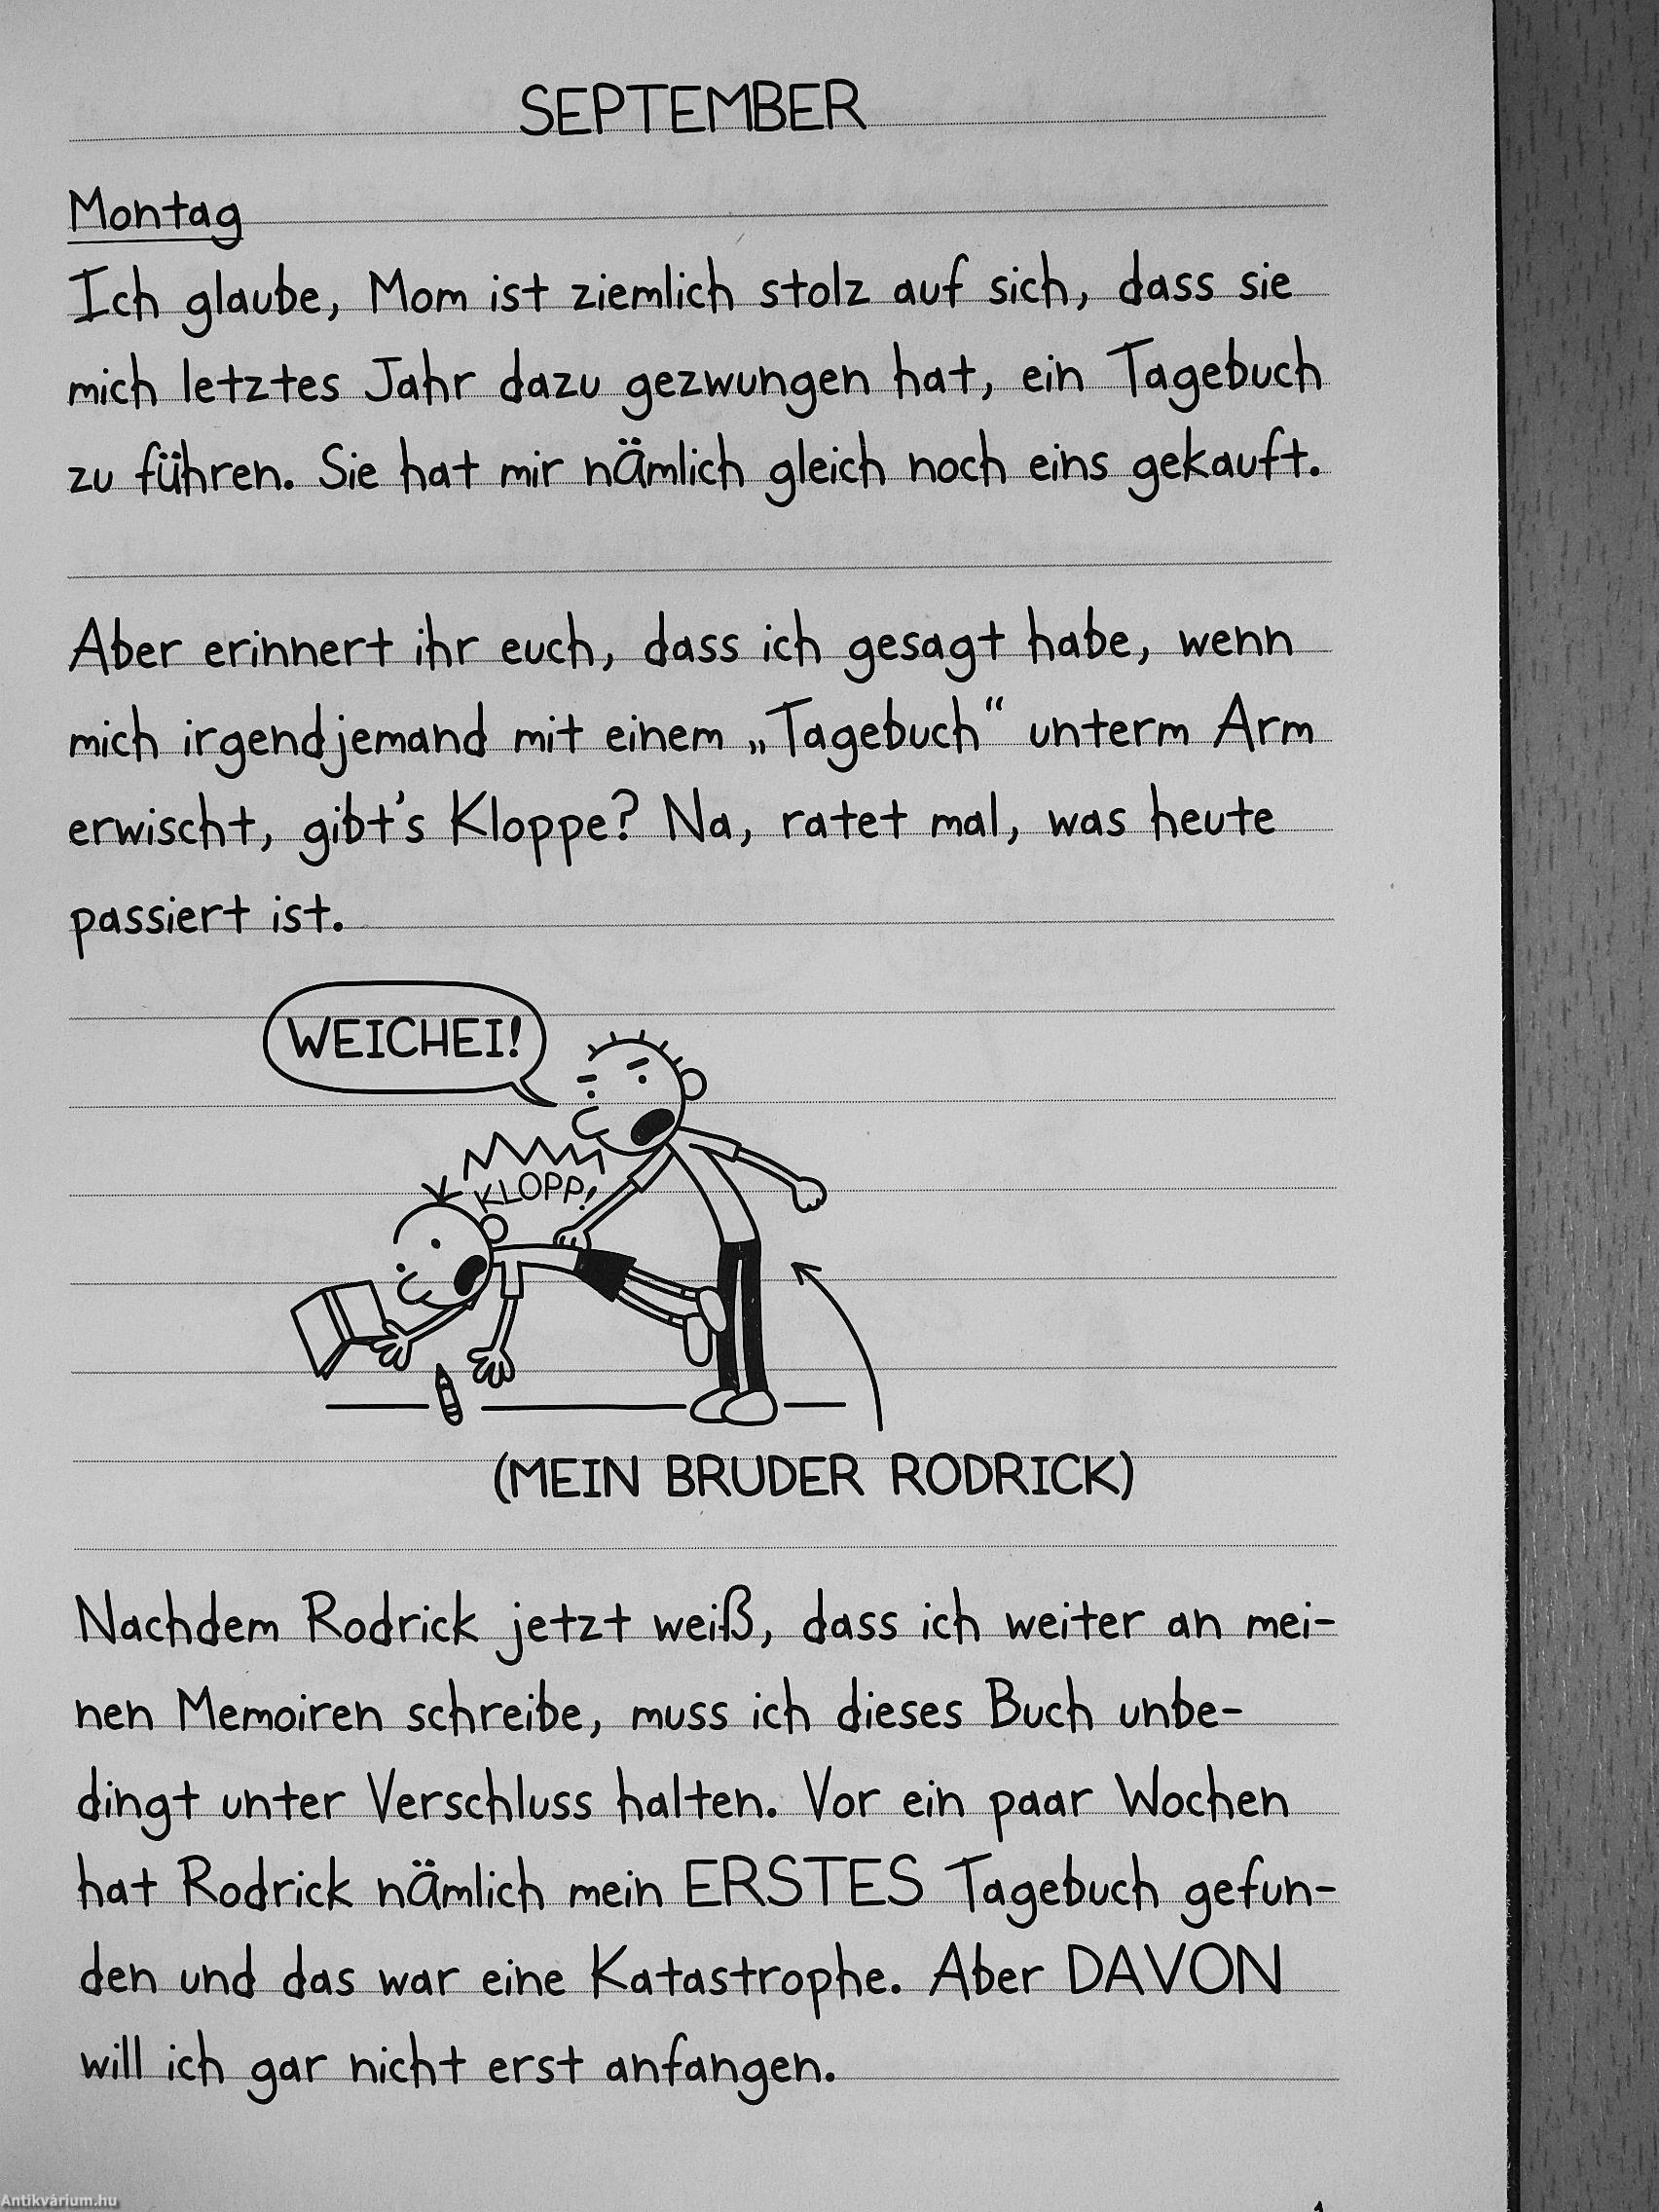 SEPTEMBER
Montag
Ich glaube, Mom ist ziemlich stolz auf sich, dass sie
mich letztes Jahr dazu gezwungen hat, ein Tagebuch
zu führen. Sie hat mir nämlich gleich noch eins gekauft.
Aber erinnert ihr euch, dass ich gesagt habe, wenn
mich irgendjemand mit einem „Tagebuch“ unterm Arm
erwischt, gibt's Kloppe? Na, ratet mal, was heute
passiert ist.
WEICHEI!
KLOPP!
(MEIN BRUDER RODRICK)
Nachdem Rodrick jetzt weiß, dass ich weiter an mei-
nen Memoiren schreibe, muss ich dieses Buch unbe-
dingt unter Verschluss halten. Vor ein paar Wochen
hat Rodrick nämlich mein ERSTES Tagebuch gefun-
den und das war eine Katastrophe. Aber DAVON
will ich gar nicht erst anfangen.
Antikvárium.hu